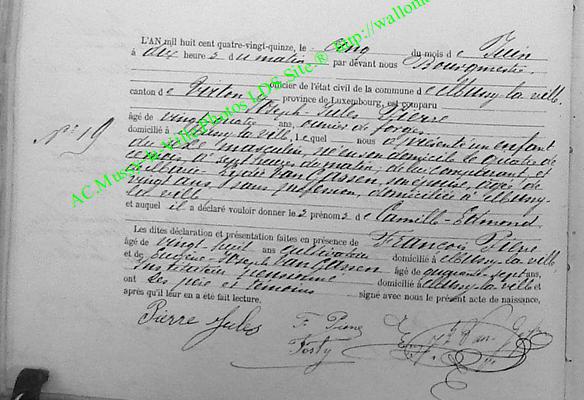 L'AN mil huit cent quatre-vingt-quinze, le Cinq du mois de Juin
à dix heures du matin, par devant nous Bourgmestre,
officier de l'état civil de la commune de Mussy-la-ville,
canton de Virton, province de Luxembourg, est comparu
Joseph-Jules Pierre
âgé de vingt quatre ans, ouvrier de forges
domicilié à Mussy la ville, lequel nous a présenté un enfant
du sexe masculin, né en son domicile le quatre de
ce mois, à sept heures du matin, de lui comparant et
Van Gassen, son épouse, âgée de
vingt ans, sans profession, domiciliée à Mussy-
la-ville
et auquel il a déclaré vouloir donner les prénoms de Camille-Edmond
Les dites déclaration et présentation faites en présence de François Pierre
âgé de vingt huit ans cultivateur domicilié à Mussy-la-ville
et de Eugène Joseph Van Gassen âgé de quarante sept ans,
Instituteur pensionné domicilié à Mussy-la-ville et
ont les père et témoins signé avec nous le présent acte de naissance,
après qu'leur en a été fait lecture.
N° 19
Pierre Jules
F. Pierre
Forty
AC.Mussy-la-Ville Photos LDS Site.® http://wallonie